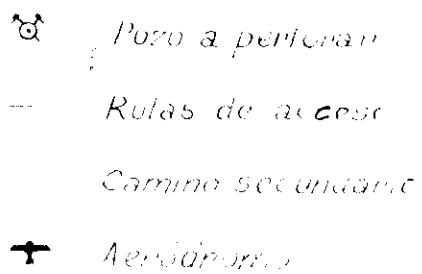 Pozo a perforar
Rutas de acceso
Camino secundario
Aeródromo